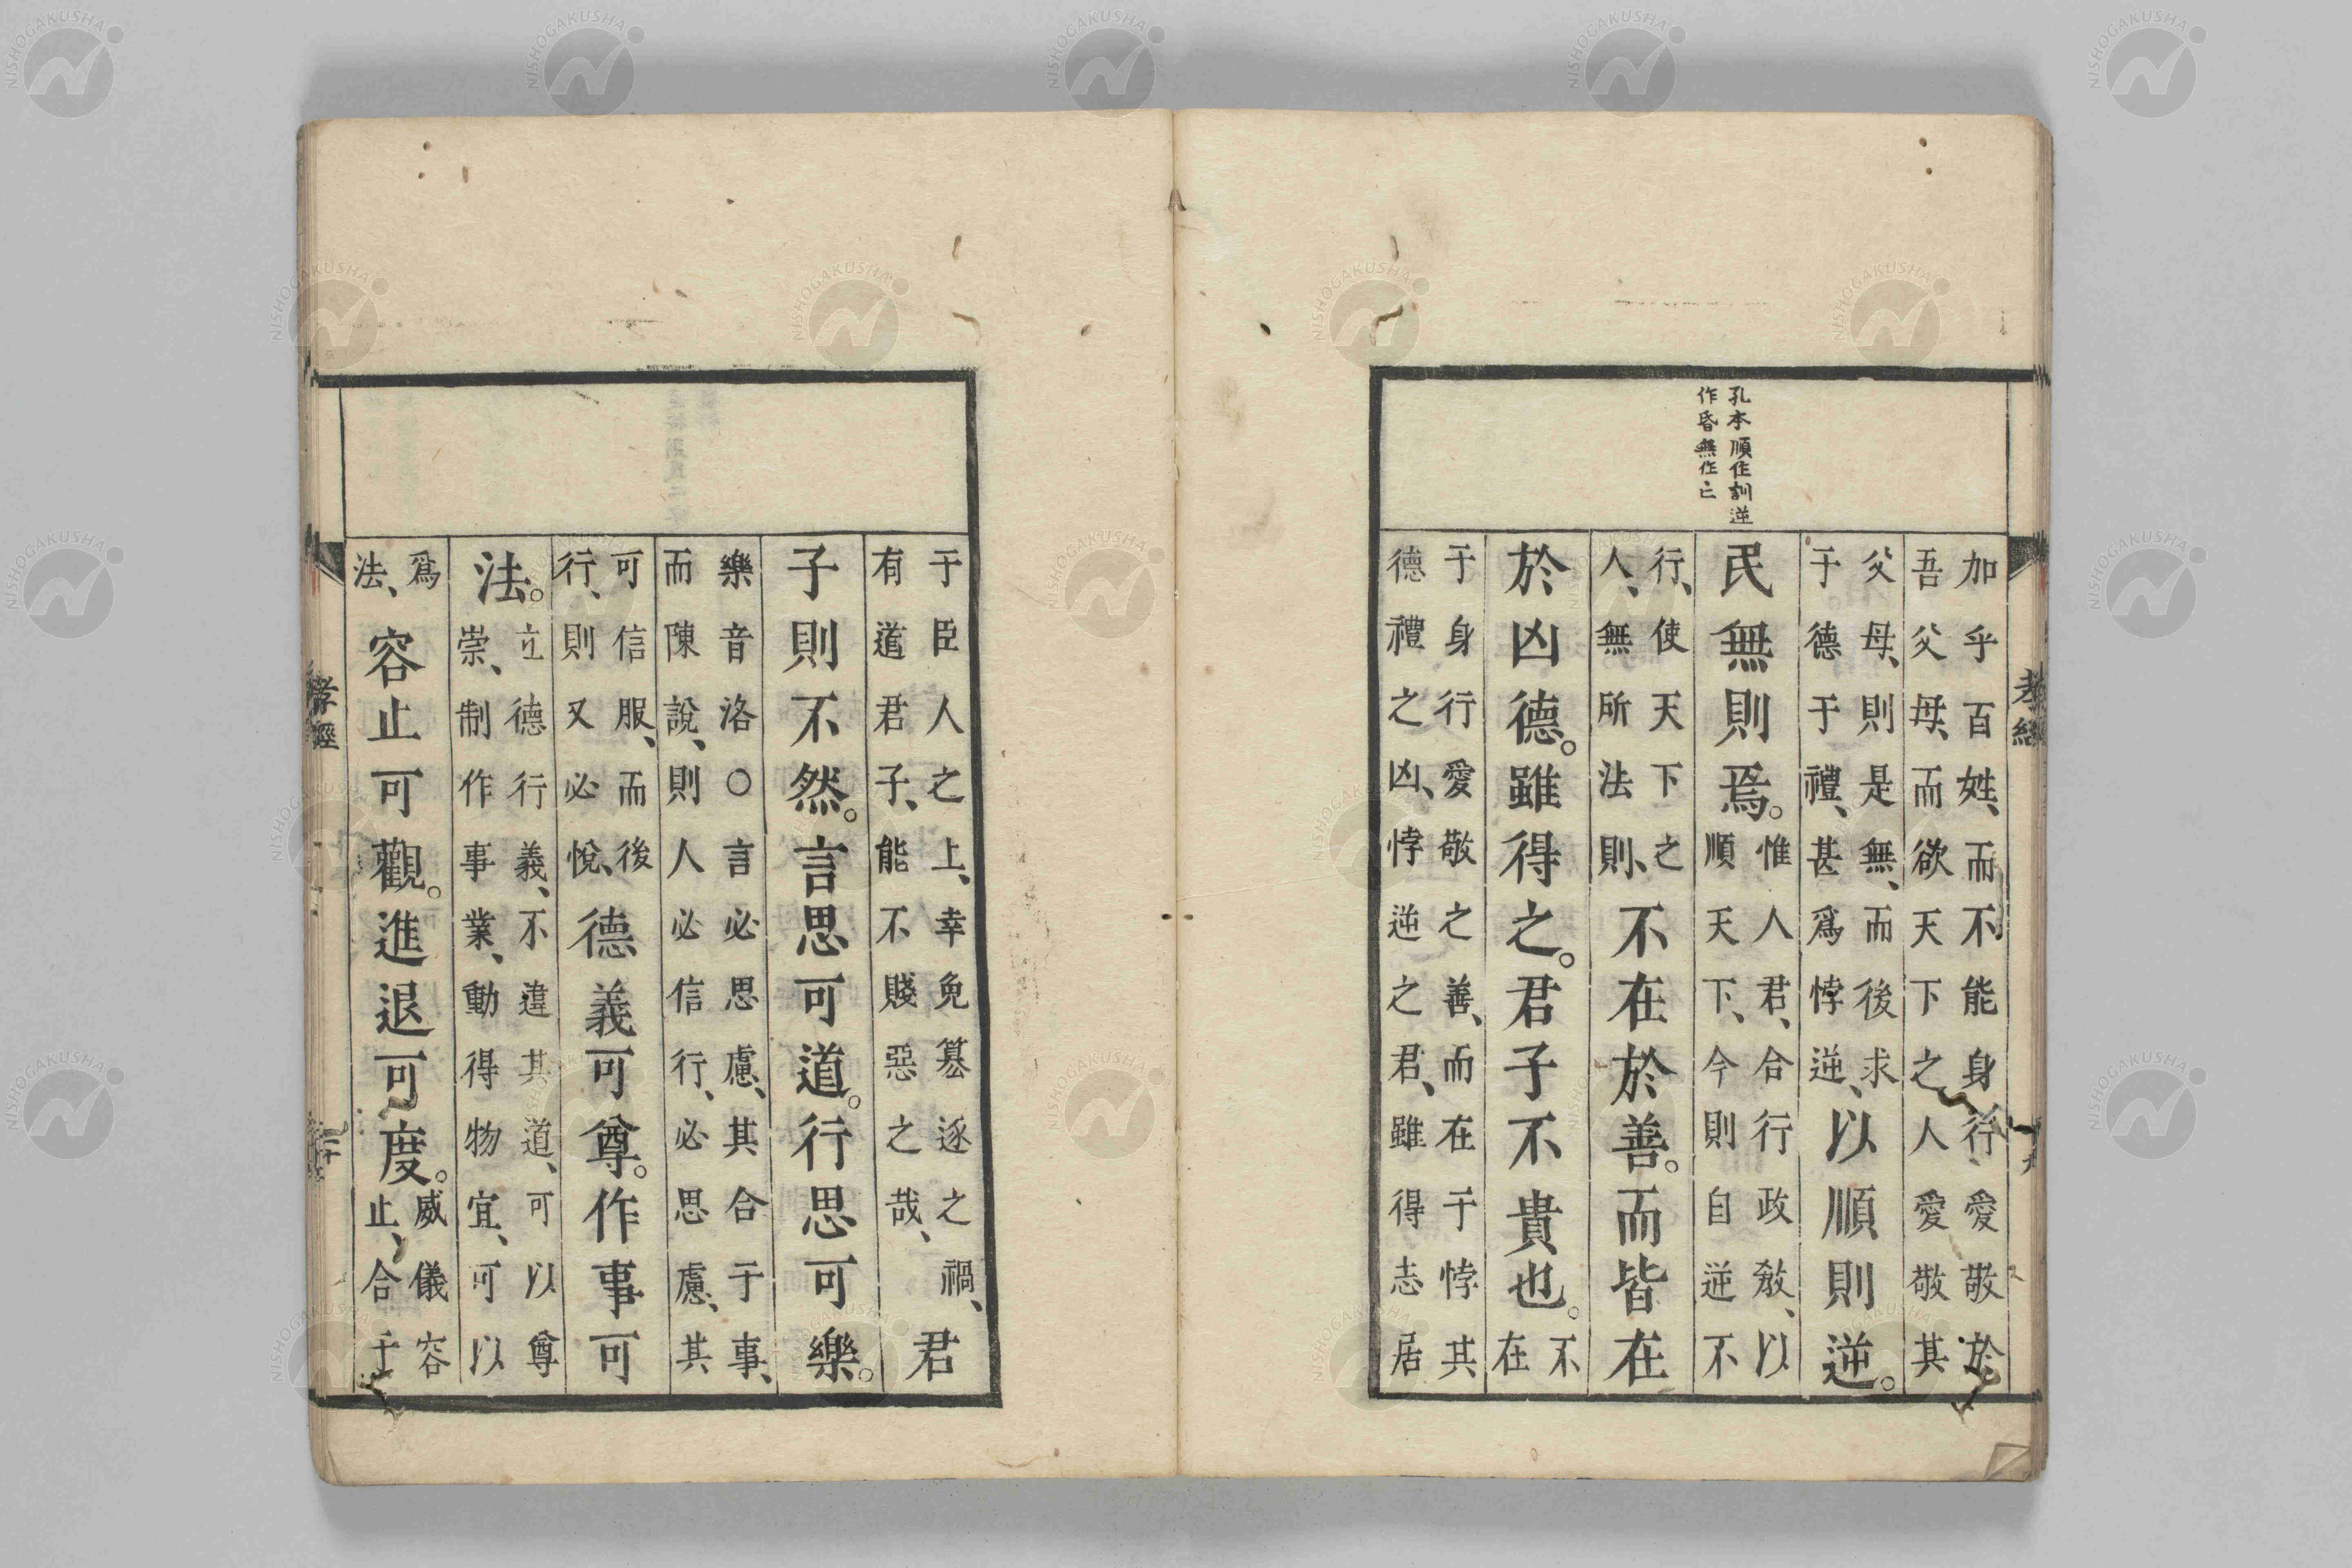 孔本順作訓逆
作昏無作亡
加乎百姓、而不能身行、愛敬於
吾父母、而欲天下之人愛敬其
父母、則是無、而後求
于德于禮、甚爲悖逆、
以順則逆。
民無則焉。
惟人君、合行政教、以
順天下、今則自逆不
行、使天下之
人、無所法則、
不在於善。而皆在
於凶德。雖得之。君子不貴也。
不
在
于身行愛敬之善、而在于悖其
德禮之凶、悖逆之君、雖得志居
孝經
于臣人之上、幸免簒逐之禍、
有道君子、能不賤惡之哉、
君
子則不然。言思可道。行思可樂。
樂音洛○言必思慮、其合于事、
而陳說、則人必信行、必思慮、其
可信服、而後
行、則又必悅、
德義可尊。作事可
法。
立德行義、不違其道、可以尊
崇、制作事業、動得物宜、可以
爲
法、
容止可觀。進退可度。
威儀容
止、合于
孝經
NISHOGAKUSHA